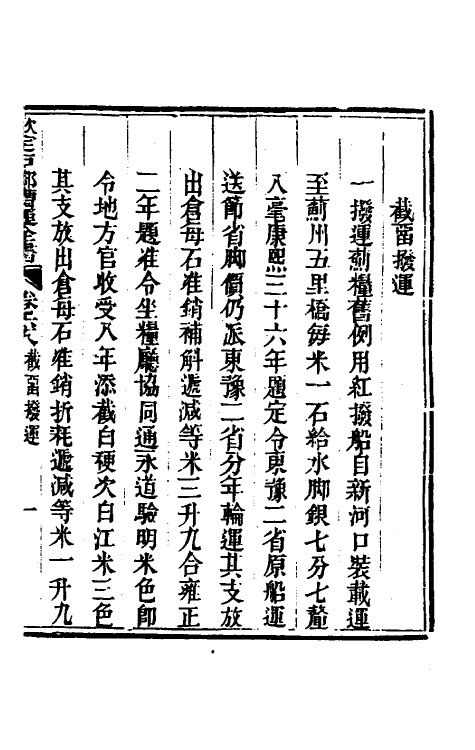 截留撥運
一撥運薊糧舊例用紅撥船自新河口裝載運
至薊州五里橋每米一石給水脚銀七分七釐
八毫康熙三十六年題定令東豫二省原船運
送節省脚價仍派東豫二省分年輪運其支放
出倉每石准銷補斛遞減等米三升九合雍正
二年題准令坐糧廳協同通永道驗明米色卽
令地方官收受八年添截白粳次白江米三色
其支放出倉每石准銷折耗遞減等米一升九
欽定戶部漕運全書 卷 截畱撥運 一